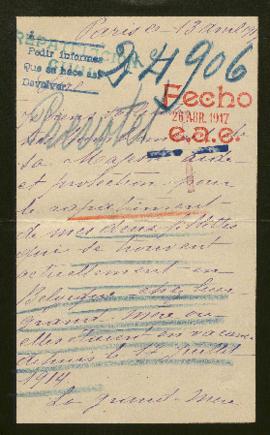 Paris le 13 avril 1917
A
Pedir informes
Que se hace así
Devolver?
24906
Fecho
26 ABR. 1917
e.a.e.
sa Majesté aide
et protection pour
le rapatriement
de mes deux fillettes
qui se trouvent
actuellement en
Belgique chez leur
grand-mère ou
elles étaient en vacances
depuis le 12 juillet
1914
La grand-mère